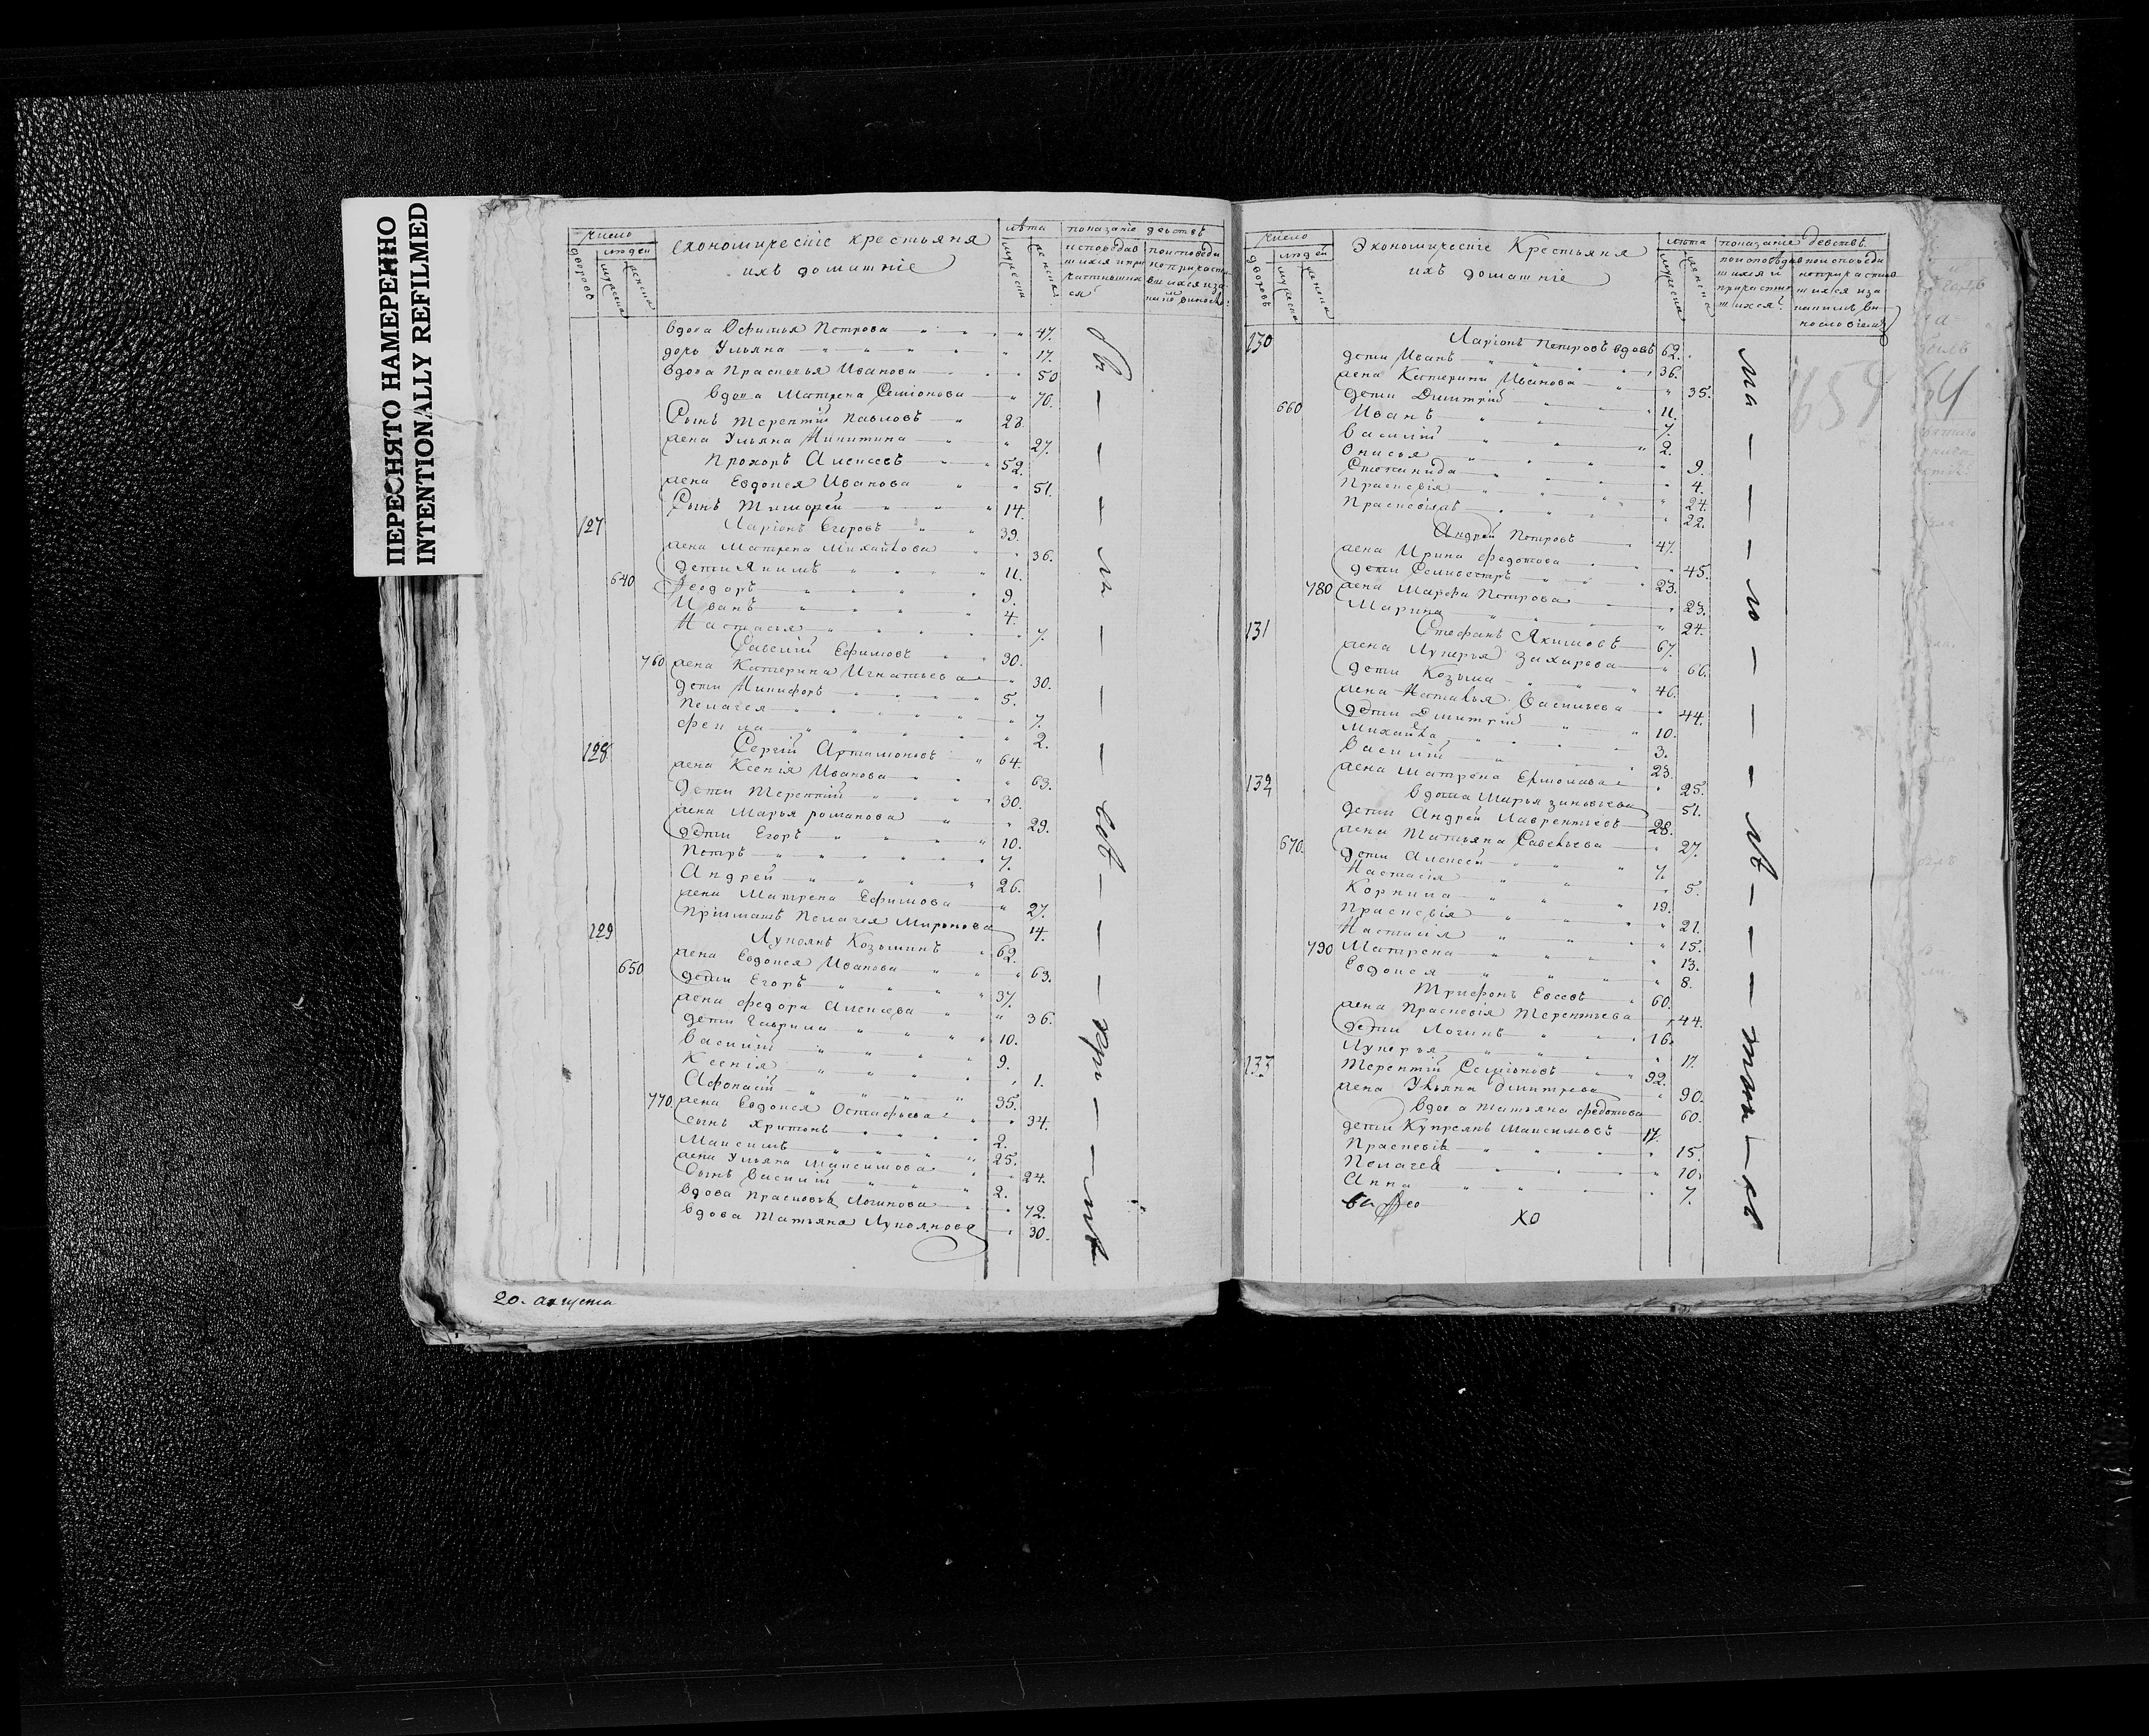 ПЕРЕСНЯТО НАМЕРЕННО
INTENTIONALLY REFILMED
число
людей
дворовъ
мужеска
женска
экономическіе крестьяня
ихъ домашніе
лѣта
мужеска
женска
показаніе действъ
вдова Офимья Петрова 47.
дочь Ульяна 17.
вдова Прасковья Иванова 50
вдова Матрена Семіонова 70.
Сынъ Терентій Павловъ 28.
жена Ульяна Никитина 27.
Прохоръ Алексеевъ 52.
жена Евдокея Иванова 51.
Сынъ Тимофей 14.
127 Ларіонъ Егоровъ 39.
жена Матрена Михайлова 36.
дети Якимъ 11.
640 Феодоръ 9.
Иванъ 4.
Настасья 7.
Савелий Ефимовъ 30.
760 жена Катерина Игнатьева 30.
дети Никифоръ 5.
Пелагея 7.
Фекла 2.
128 Сергій Артамоновъ 64.
жена Ксенія Иванова 63.
дети Терентій 30.
жена Марья романова 29.
дети Егоръ 10.
Петръ 7.
Андрей 26.
жена Матрена Ефимова 27.
Пріимашъ Пелагея Миронова 14.
129 Лукоянъ Козьминъ 62.
жена Евдокея Иванова 63.
650 дети Егоръ 37.
жена федора Алексеева 36.
дети Гаврила 10.
Василій 9.
Ксенія 1.
Афонасій 35.
770 жена Евдокея Остафьева 34.
сынъ Харитонъ 2.
Максимъ 25.
жена Ульяна Максимова 24.
Сынъ Василій 2.
вдова Прасковья Логинова 72.
вдова Татьяна Лукоянова 30.
20. августа
число
людей
дворовъ
мужеска
женска
Экономическіе Крестьяня
ихъ домашніе
лѣта
мужеска
женска
показаніе действъ
130 Ларіонъ Петровъ вдовъ 62.
дети Иванъ 36.
жена Катерина Иванова 35.
дети Дмитрій 11.
660 Иванъ 7.
Василій 2.
Онисья 9.
Степанида 4.
Праскевія 24.
22.
Андрей Петровъ 47.
жена Ирина федотова 45.
дети Селивестръ 23.
780 жена Марфа Петрова 23.
Марина 24.
131 Стефанъ Якимовъ 67.
жена Лукерья Захарова 66.
дети Козьма 46.
жена Наталья Васильева 44.
дети Дмитрій 10.
Михайла 3.
Василій 23.
жена Матрена Ермолаева 25.
132 вдова Марья зиновьева 51.
дети Андрей Лаврентьевъ 28.
жена Татьяна Савельева 27.
670. дети Алексей 7.
Настасія 5.
Корнила 19.
Праскевія 21.
Настасія 15.
790 Матрена 13.
Евдокея 8.
Трифонъ Евсеевъ 60.
жена Праскевія Терентьева 44.
дети Логинъ 16.
Лукерья 17.
133 Терентій Семіоновъ 92.
жена Ульяна Дмитрева 90.
вдова Татьяна федотова 60.
дети Купреянъ Максимовъ 17.
Праскевія 15.
Пелагея 10.
Анна 7.